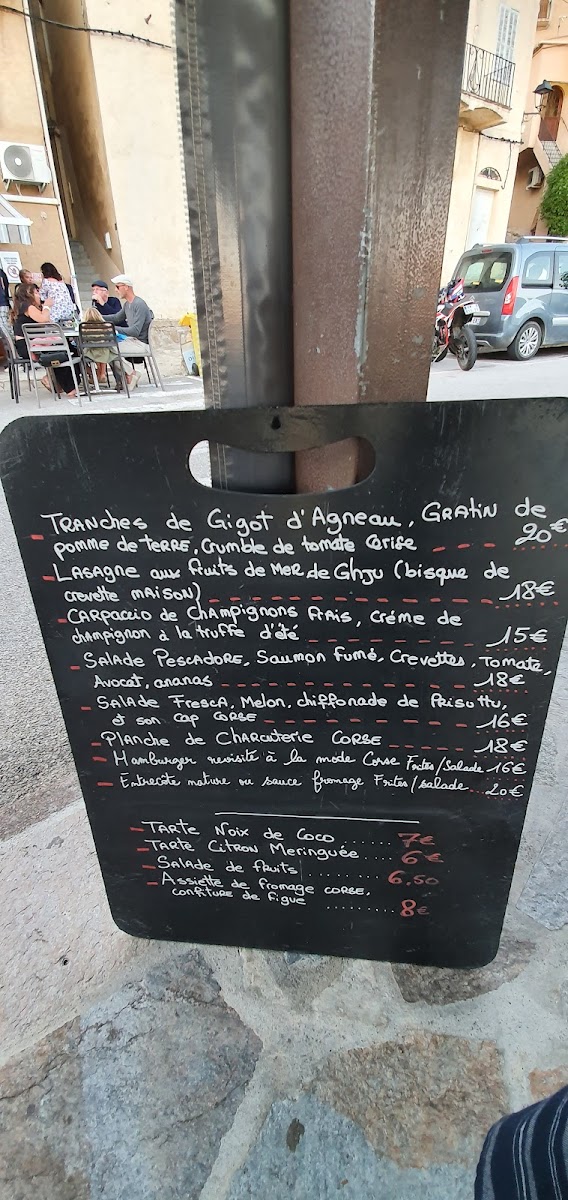 - TRANches de Gigot d'Agneau, GRATIN de
pomme de TERRE, Crumble de tomate Cerise --- 20€
- LASAGNE aux fruits de MER de Ghju (bisque de
crevette MAISON) --- 18€
- CARPACCIO de Champignons frais, Crème de
champignon à la truffe d'été --- 15€
- SALADE PESCADORE, Saumon fumé, Crevettes, Tomate,
Avocat, ananas --- 18€
- SALADE FRESCA, Melon, chiffonade de PRISUTTU,
et son cap CORSE --- 16€
- Planche de CHARCUTERIE CORSE --- 18€
- Hamburger revisité à la mode Corse Frites/Salade 16€
- Entrecôte nature ou sauce fromage Frites/salade... 20€
- TARTE Noix de Coco ....... 7€
- TARTE Citron Meringuée .... 6€
- SALADE de fruits ......... 6.50
- Assiette de fromage CORSE,
confiture de figue ......... 8€